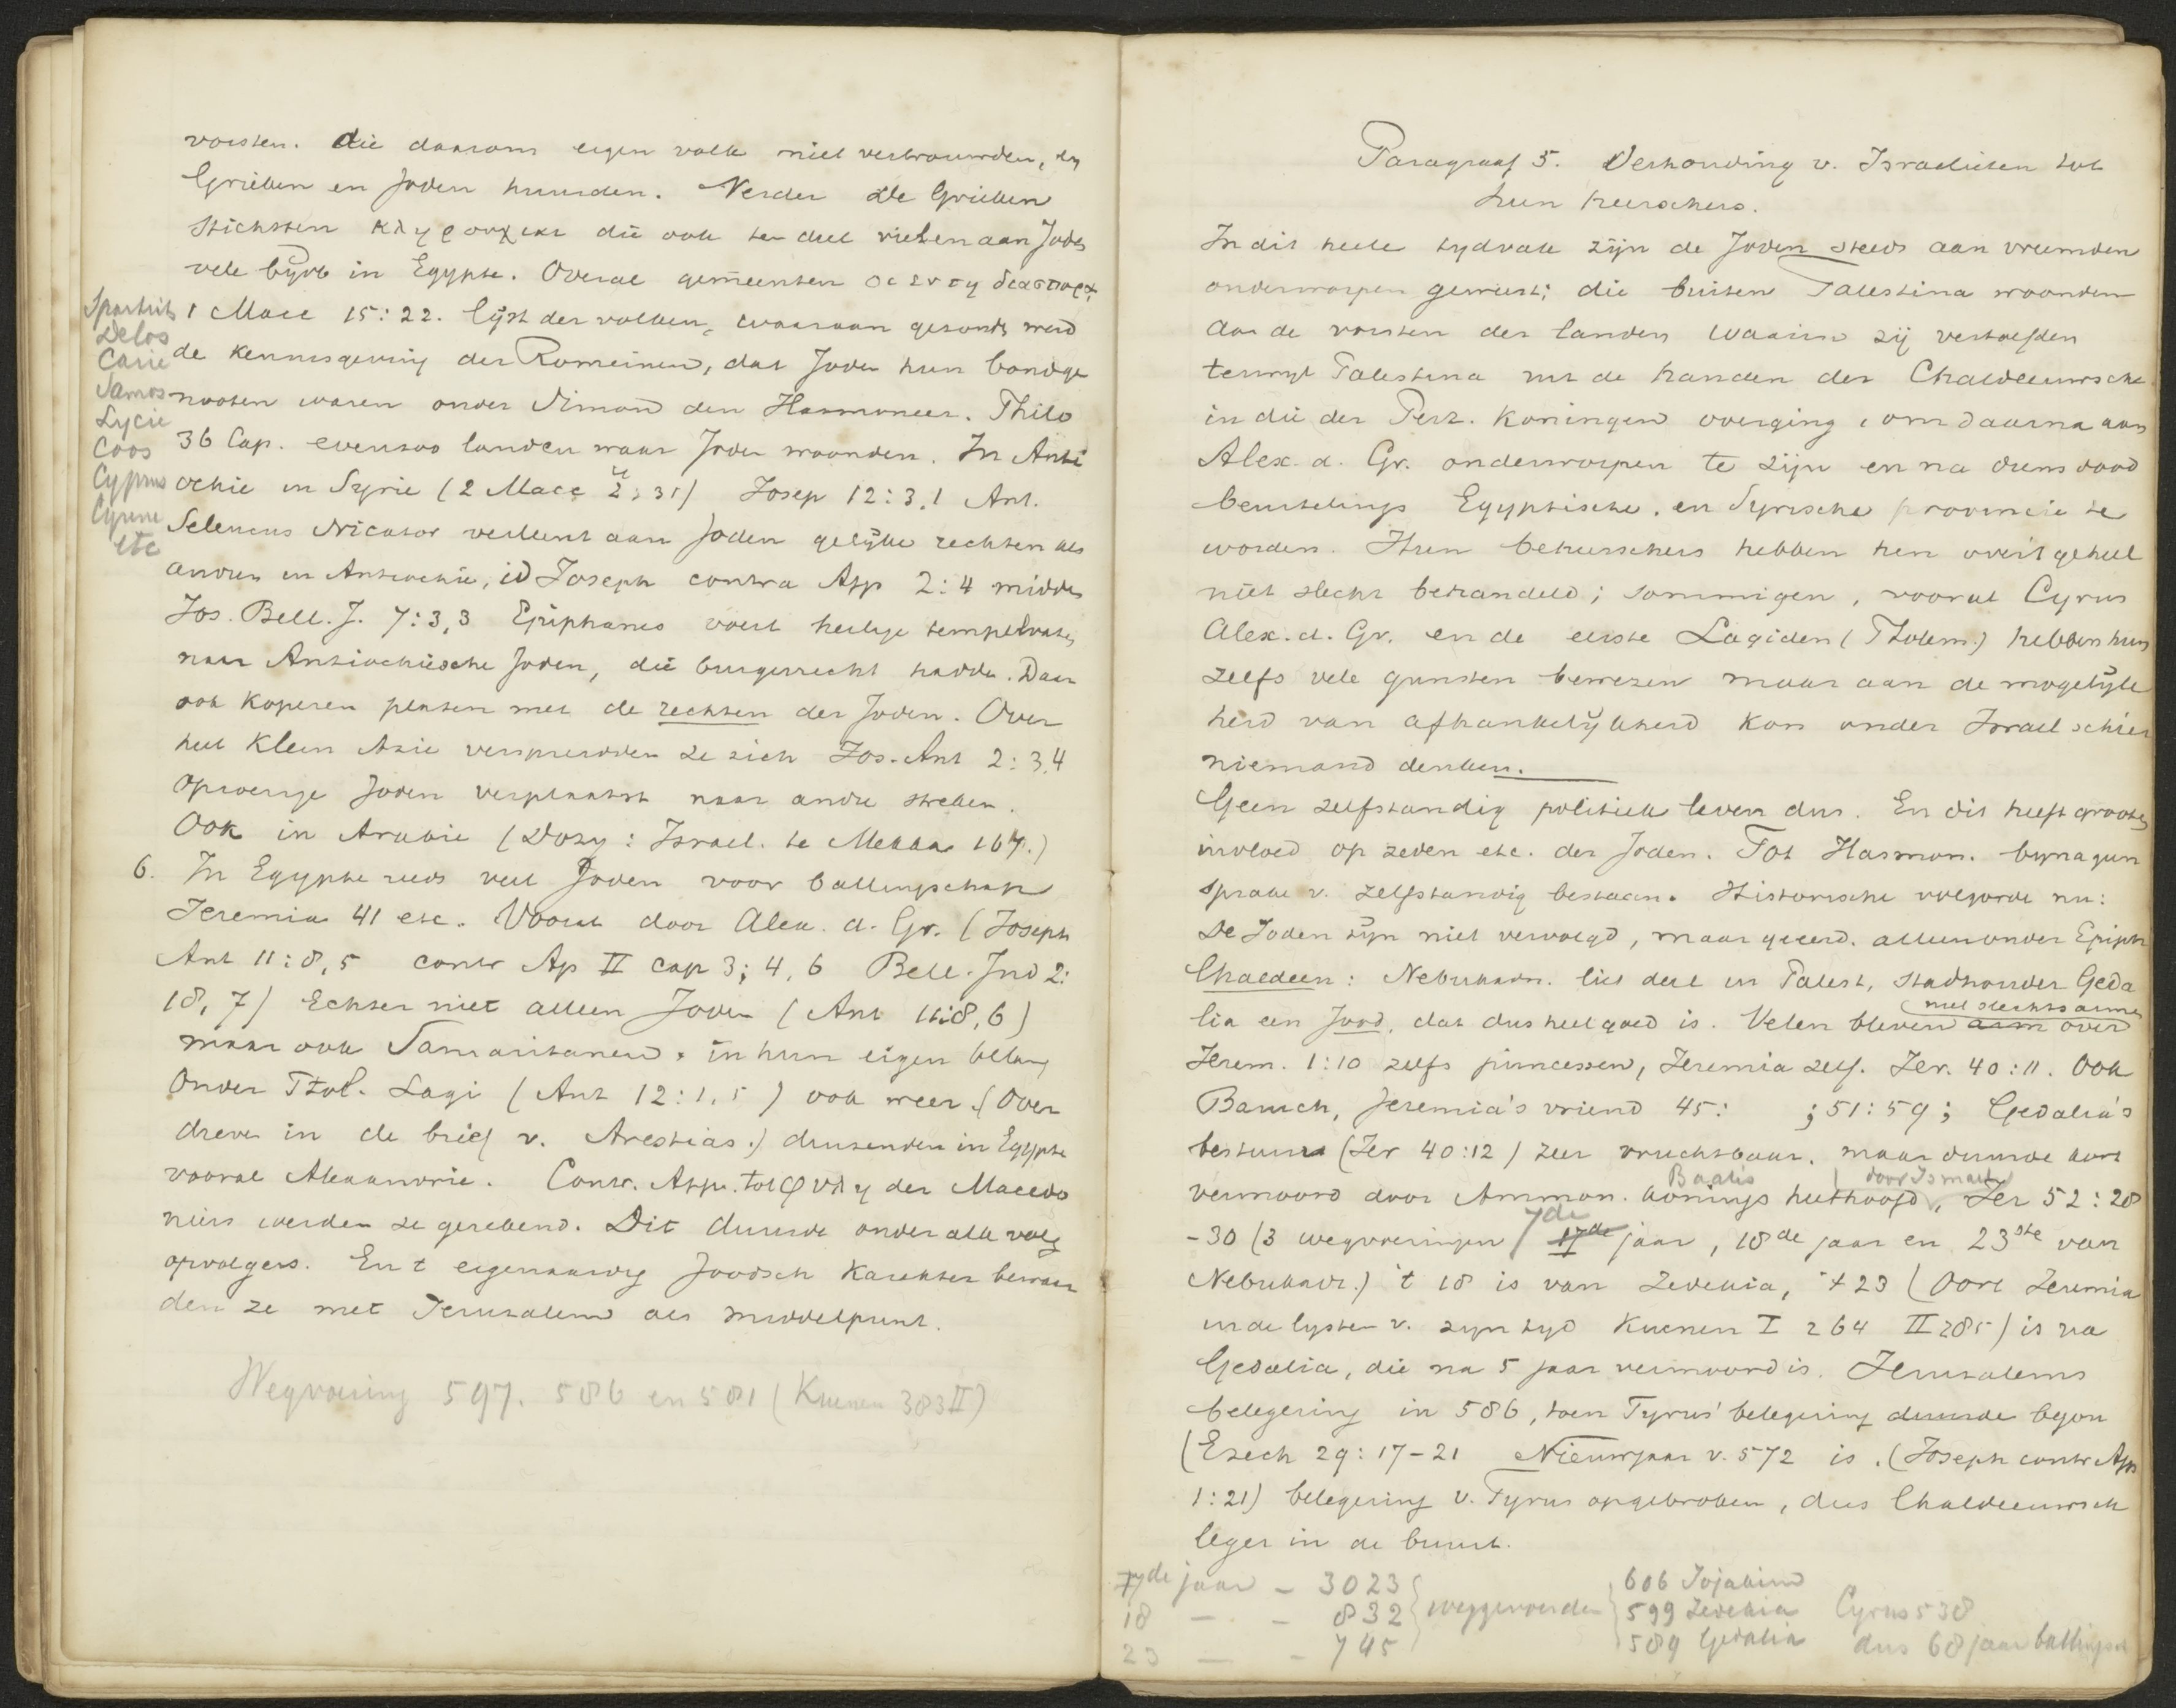 vorsten. die daarom eigen volk niet vertrouwden, en
Grieken en Joden huurden. Verder de Grieken
stichtten κληρουχιαι die ook ten deel vielen aan Jods
vele byvb in Egypte. Overal gemeenten οι εν τη διασπορᾳ
1 Macc 15:22. lijst der volken, waaraan gezonden werd
de kennisgeving der Romeinen, dat Joden hun bondge
nooten waren onder Simon den Hasmoneer. Philo
36 Cap. evenzoo landen waar Joden woonden. In Anti
ochie in Syrie (2 Macc 4:35) Josep 12:3,1 Ant.
Seleucus Nicator verleent aan Joden gelijke rechten als
andren in Antiochie, id Joseph contra App 2:4 midden
Jos. Bell. J. 7:3,3 Epiphanes voert heilige tempelvaten
naar Antiochiische Joden, die burgerrecht hadden. Daar
ook koperen platen met de rechten der Joden. Over
heel Klein Azie verspreidden ze zich Jos. Ant 2:3,4
oproerige Joden verplaatst naar andre streken.
Ook in Arabie (Dozy: Israel. te Mekka 167.)
6. In Egypte reeds veel Joden voor ballingschap
Jeremia 41 etc. Vooral door Alex. d. Gr. (Joseph
Ant 11:8,5 contr Ap II cap 3; 4, 6 Bell. Jud 2:
18, 7) Echter niet alleen Joden (Ant 11:8,6)
maar ook Samaritanen. in hun eigen belang
Onder Ptol. Lagi (Ant 12:1,5) ook weer. (Over
dreven in de brief v. Arestias.) duizenden in Egypte
vooral Alexandrie. Contr. App. tot φυλη der Macedo
niers werden ze gerekend. Dit duurde onder alle volg
opvolgers. En t eigenaardig Joodsch karakter bewaar
den ze met Jeruzalem als middelpunt.
Wegvoering 597. 586 en 581 (Kuenen 383 II)
Sparta
Delos
Carie
Samos
Lycie
Coos
Cyprus
Cyrene
etc
Paragraaf 5. Verhouding v. Israelieten tot
hun heerschers.
In dit heele tydvak zijn de Joden steeds aan vreemden
onderworpen geweest; die buiten Palestina woonden
aan de vorsten der landen waarin zij vertoefden
terwyl Palestina uit de handen der Chaldeeuwsche
in die der Perz. Koningen overging, om daarna aan
Alex. d. Gr. onderworpen te zijn en na diens dood
beurtelings Egyptische, en Syrische provincie te
worden. Hun beheerschers hebben hen over't geheel
niet slecht behandeld; sommigen, vooral Cyrus
Alex. d. Gr. en de eerste Lagiden (Ptolem.) hebben hun
zelfs vele gunsten bewezen maar aan de mogelijk
heid van afhankelijkheid kon onder Israel schier
niemand denken.
Geen zelfstandig politiek leven dus. En dit heeft grooten
invloed op zeden etc. der Joden. Tot Hasmon. byna geen
sprake v. zelfstandig bestaan. Historische volgorde nu:
De Joden zijn niet vervolgd, maar geeerd. alleen onder Epiph
Chaldeen: Nebukadn. liet deel in Palest, stadhouder Geda
lia een Jood, dat dus heel goed is. Velen bleven arm over
niet slechts armen
Jerem. 1:10 zelfs princessen, Jeremia zelf. Jer. 40:11. Ook
Baruch, Jeremia's vriend 45: ; 51:59; Gedalia's
bestuur (Jer 40:12) zeer vruchtbaar. maar duurde kort
Baalis door Ismael
vermoord door Ammon. konings hulthoofd, Jer 52:28
-30 (3 wegvoeringen 7de 17de jaar, 18de jaar en 23ste van
Nebukadr.) 't 18 is van Zedekia, 't 23 (Oort Jeremia
in de lysten v. zyn tyd Kuenen I 264 II 285) is na
Gedalia, die na 5 jaar vermoord is. Jeruzalems
belegering in 586, toen Tyrus' belegering duurde begon
(Ezech 29:17-21 Nieuwjaar v. 572 is. (Joseph contr App
1:21) belegering v. Tyrus opgebroken, dus Chaldeeuwsch
leger in de buurt.
7de jaar - 3023 606 Jojakim
18 - - 832 weggevoerden 599 Zedekia Cyrus 538
23 - - 745 589 Gedalia dus 68 jaar ballingsch